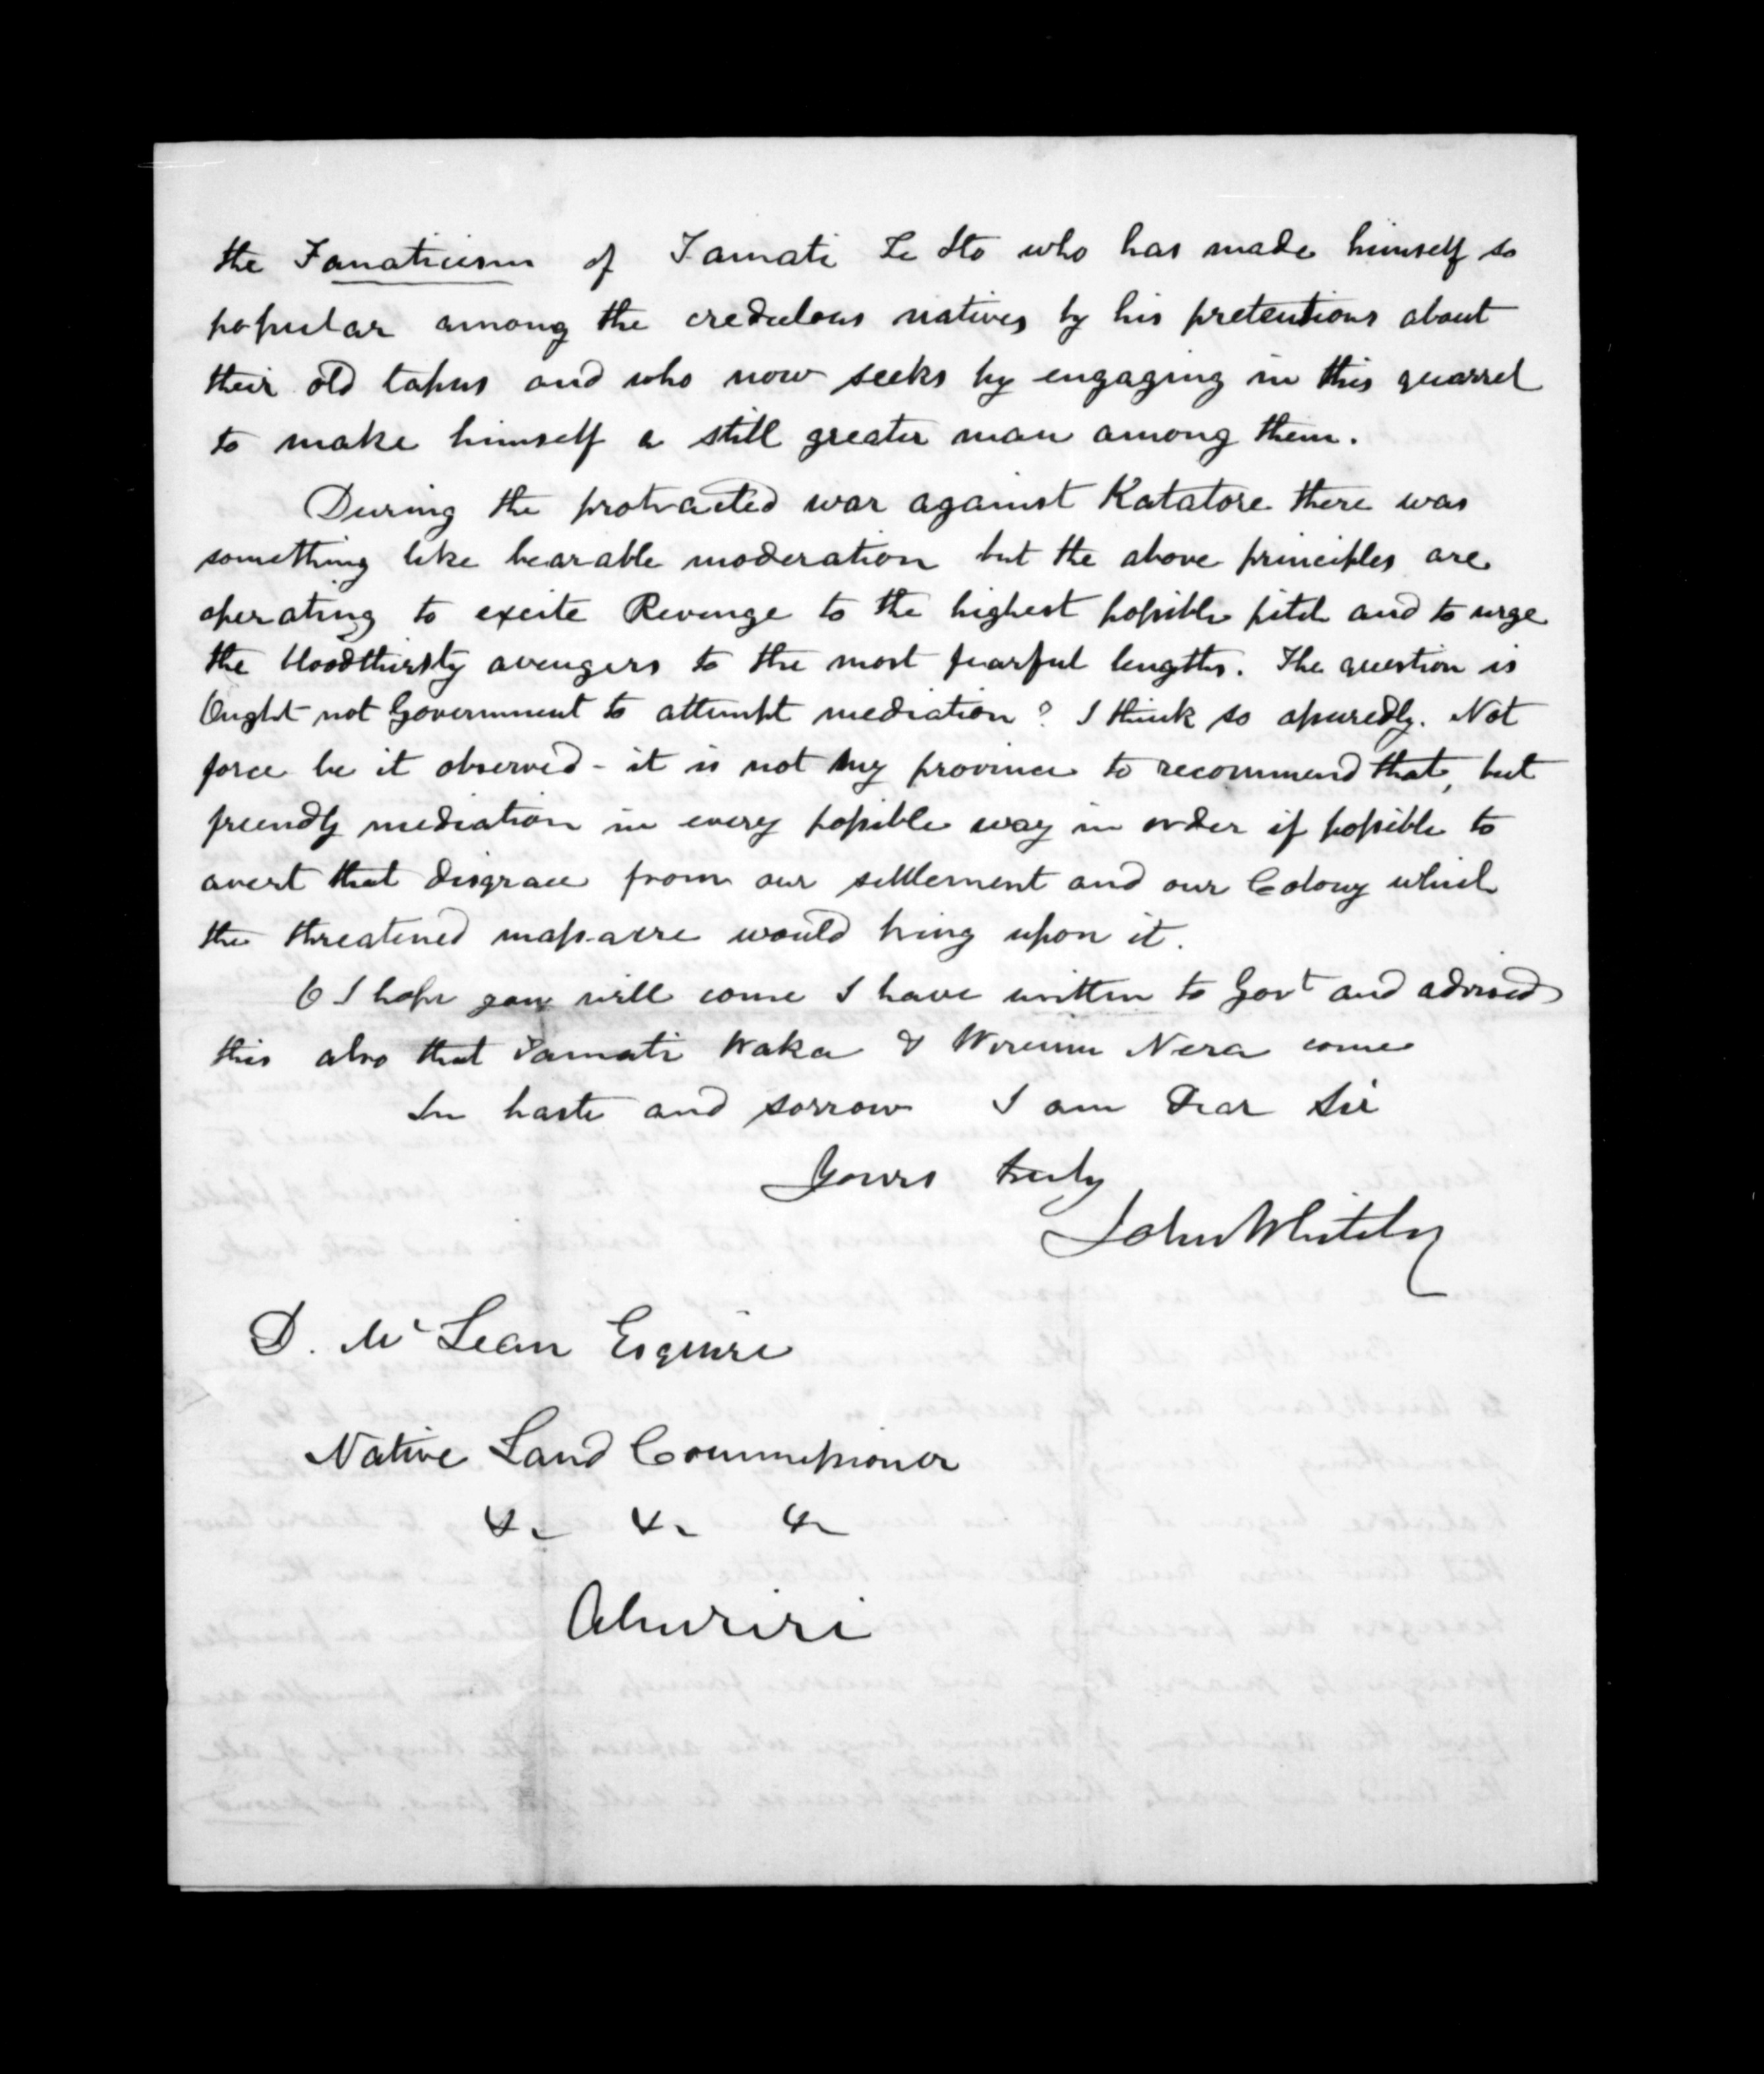 the Fanaticism of Tamati Te Ito who has made himself so
popular among the credulous natives by his pretentions about
their old tapus and who now seeks by engaging in this quarrel
to make himself a still greater man among them.
During the protracted war against Katatore there was
something like bearable moderation but the above principles are
operating to excite Revenge to the highest possible pitch and to urge
the bloodthirsty avengers to the most fearful lengths. The question is
Ought not Government to attempt mediation? I think so assuredly. Not
force be it observed - it is not my province to recommend that, but
friendly mediation in every possible way in order if possible to
avert that disgrace from our settlement and our Colony which
the threatened massacre would bring upon it.
O I hope you will come I have written to Govt and advised
this also that Tamati Waka & Wiremu Nera come
In haste and sorrow I am Dear Sir
Yours truly
John Whiteley
D. McLean Esquire
Native Land Commissioner
&c &c &c
Ahuriri